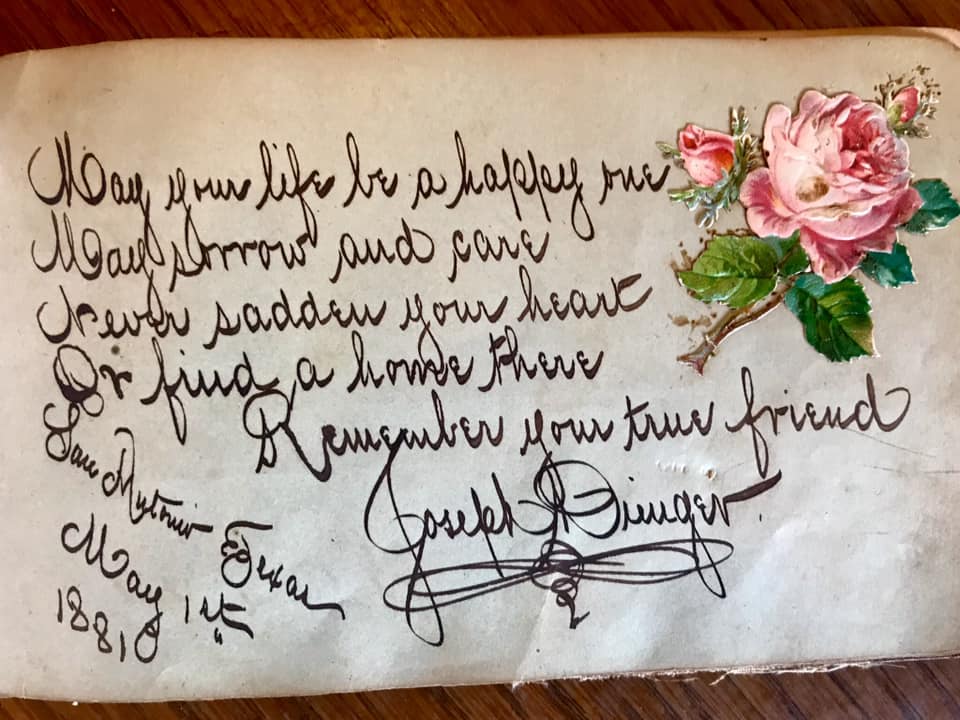 May your life be a happy one
May sorrow and care
Never sadden your heart
Or find a home there
Remember your true friend
Joseph
San Antonio Texas
May 1st
1881